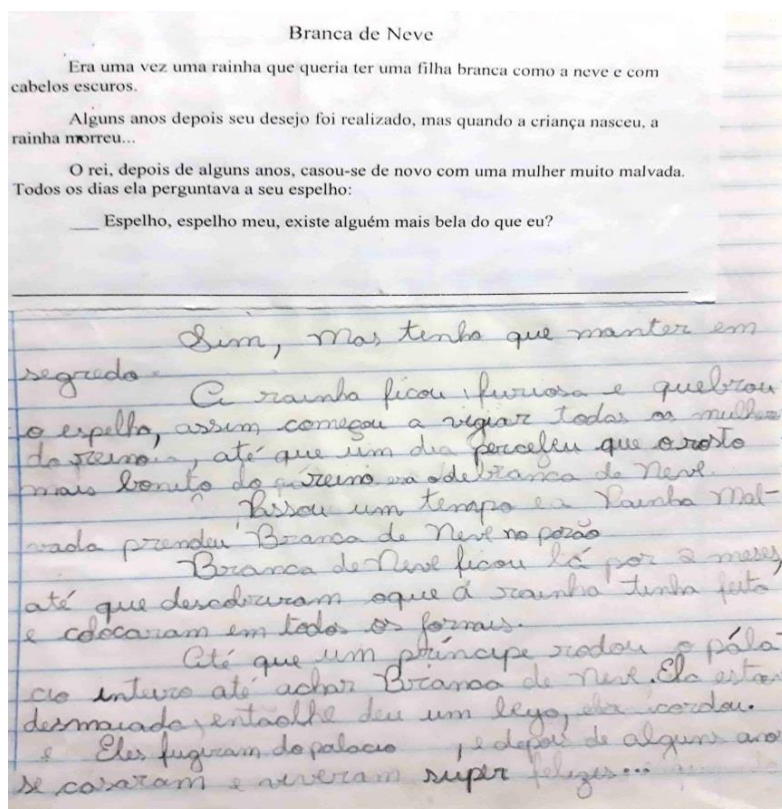 Branca de Neve
Era uma vez uma rainha que queria ter uma filha branca como a neve e com
cabelos escuros.
Alguns anos depois seu desejo foi realizado, mas quando a criança nasceu, a
rainha morreu...
O rei, depois de alguns anos, casou-se de novo com uma mulher muito malvada.
Todos os dias ela perguntava a seu espelho:
___ Espelho, espelho meu, existe alguém mais bela do que eu?
Sim, mas tenho que manter em
segredo.
A rainha ficou furiosa e quebrou
o espelho, assim começou a vigiar todas as mulher
do reino, até que um dia percebeu que o rosto
mais bonito do reino era o de branca de neve.
Passou um tempo e a Rainha Mal-
vada prendeu Branca de Neve no porão
Branca de Neve ficou lá por 2 meses,
até que descobriram oque a rainha tinha feito
e colocaram em todos os jornais.
Até que um príncipe rodou o pála
cio inteiro até achar Branca de Neve. Ela estava
desmaiada, entao lhe deu um beijo, ela acordou.
Eles fugiram do palacio, e depois de alguns ano
se casaram e viveram super felizes...